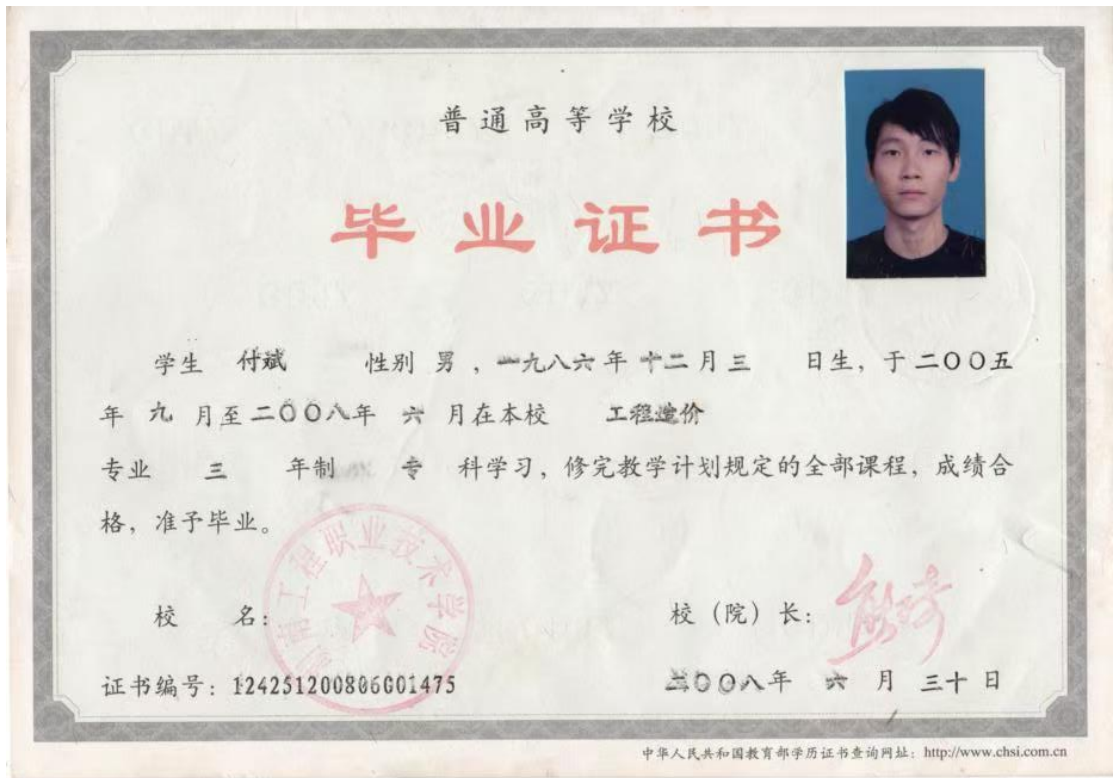 普通高等学校
毕业证书
学生 付斌 性别 男，一九八六年十二月三 日生，于二〇〇五
年 九 月至二〇〇八年 六 月在本校 工程造价
专业 三 年制 专 科学习，修完教学计划规定的全部课程，成绩合
格，准予毕业。
工程职业技术学院
校 名： 校（院）长：
证书编号：124251200806001475 二〇〇八年 六 月 三十日
中华人民共和国教育部学历证书查询网址：http://www.chsi.com.cn